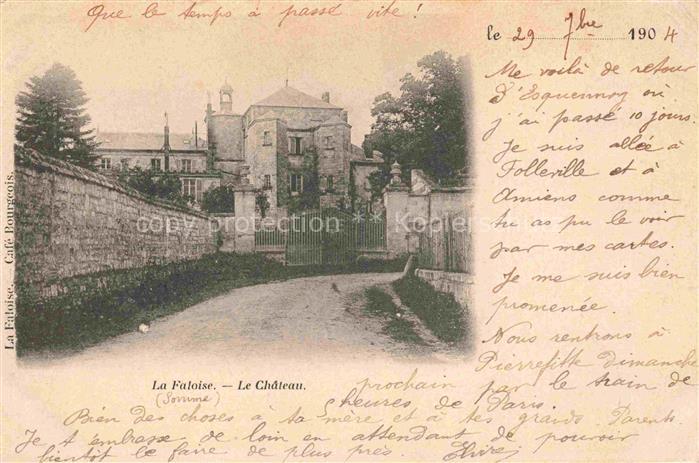 Que le temps a passé vite !
le 29 7bre 1904
Me voilà de retour
d'Esquennoy où
j'ai passé 10 jours.
Je suis allée à
Folleville et à
Amiens comme
tu as pu le voir
par mes cartes.
Je me suis bien
promenée.
Nous rentrons à
Pierrefitte dimanche
prochain par le train de
heures de Paris.
Bien des choses à ta mère et à tes grands Parents.
Je t'embrasse de loin en attendant de pouvoir
bientôt le faire de plus près.
La Faloise. — Café Bourgeois.
La Faloise. — Le Château.
(Somme)
copyright protection ***